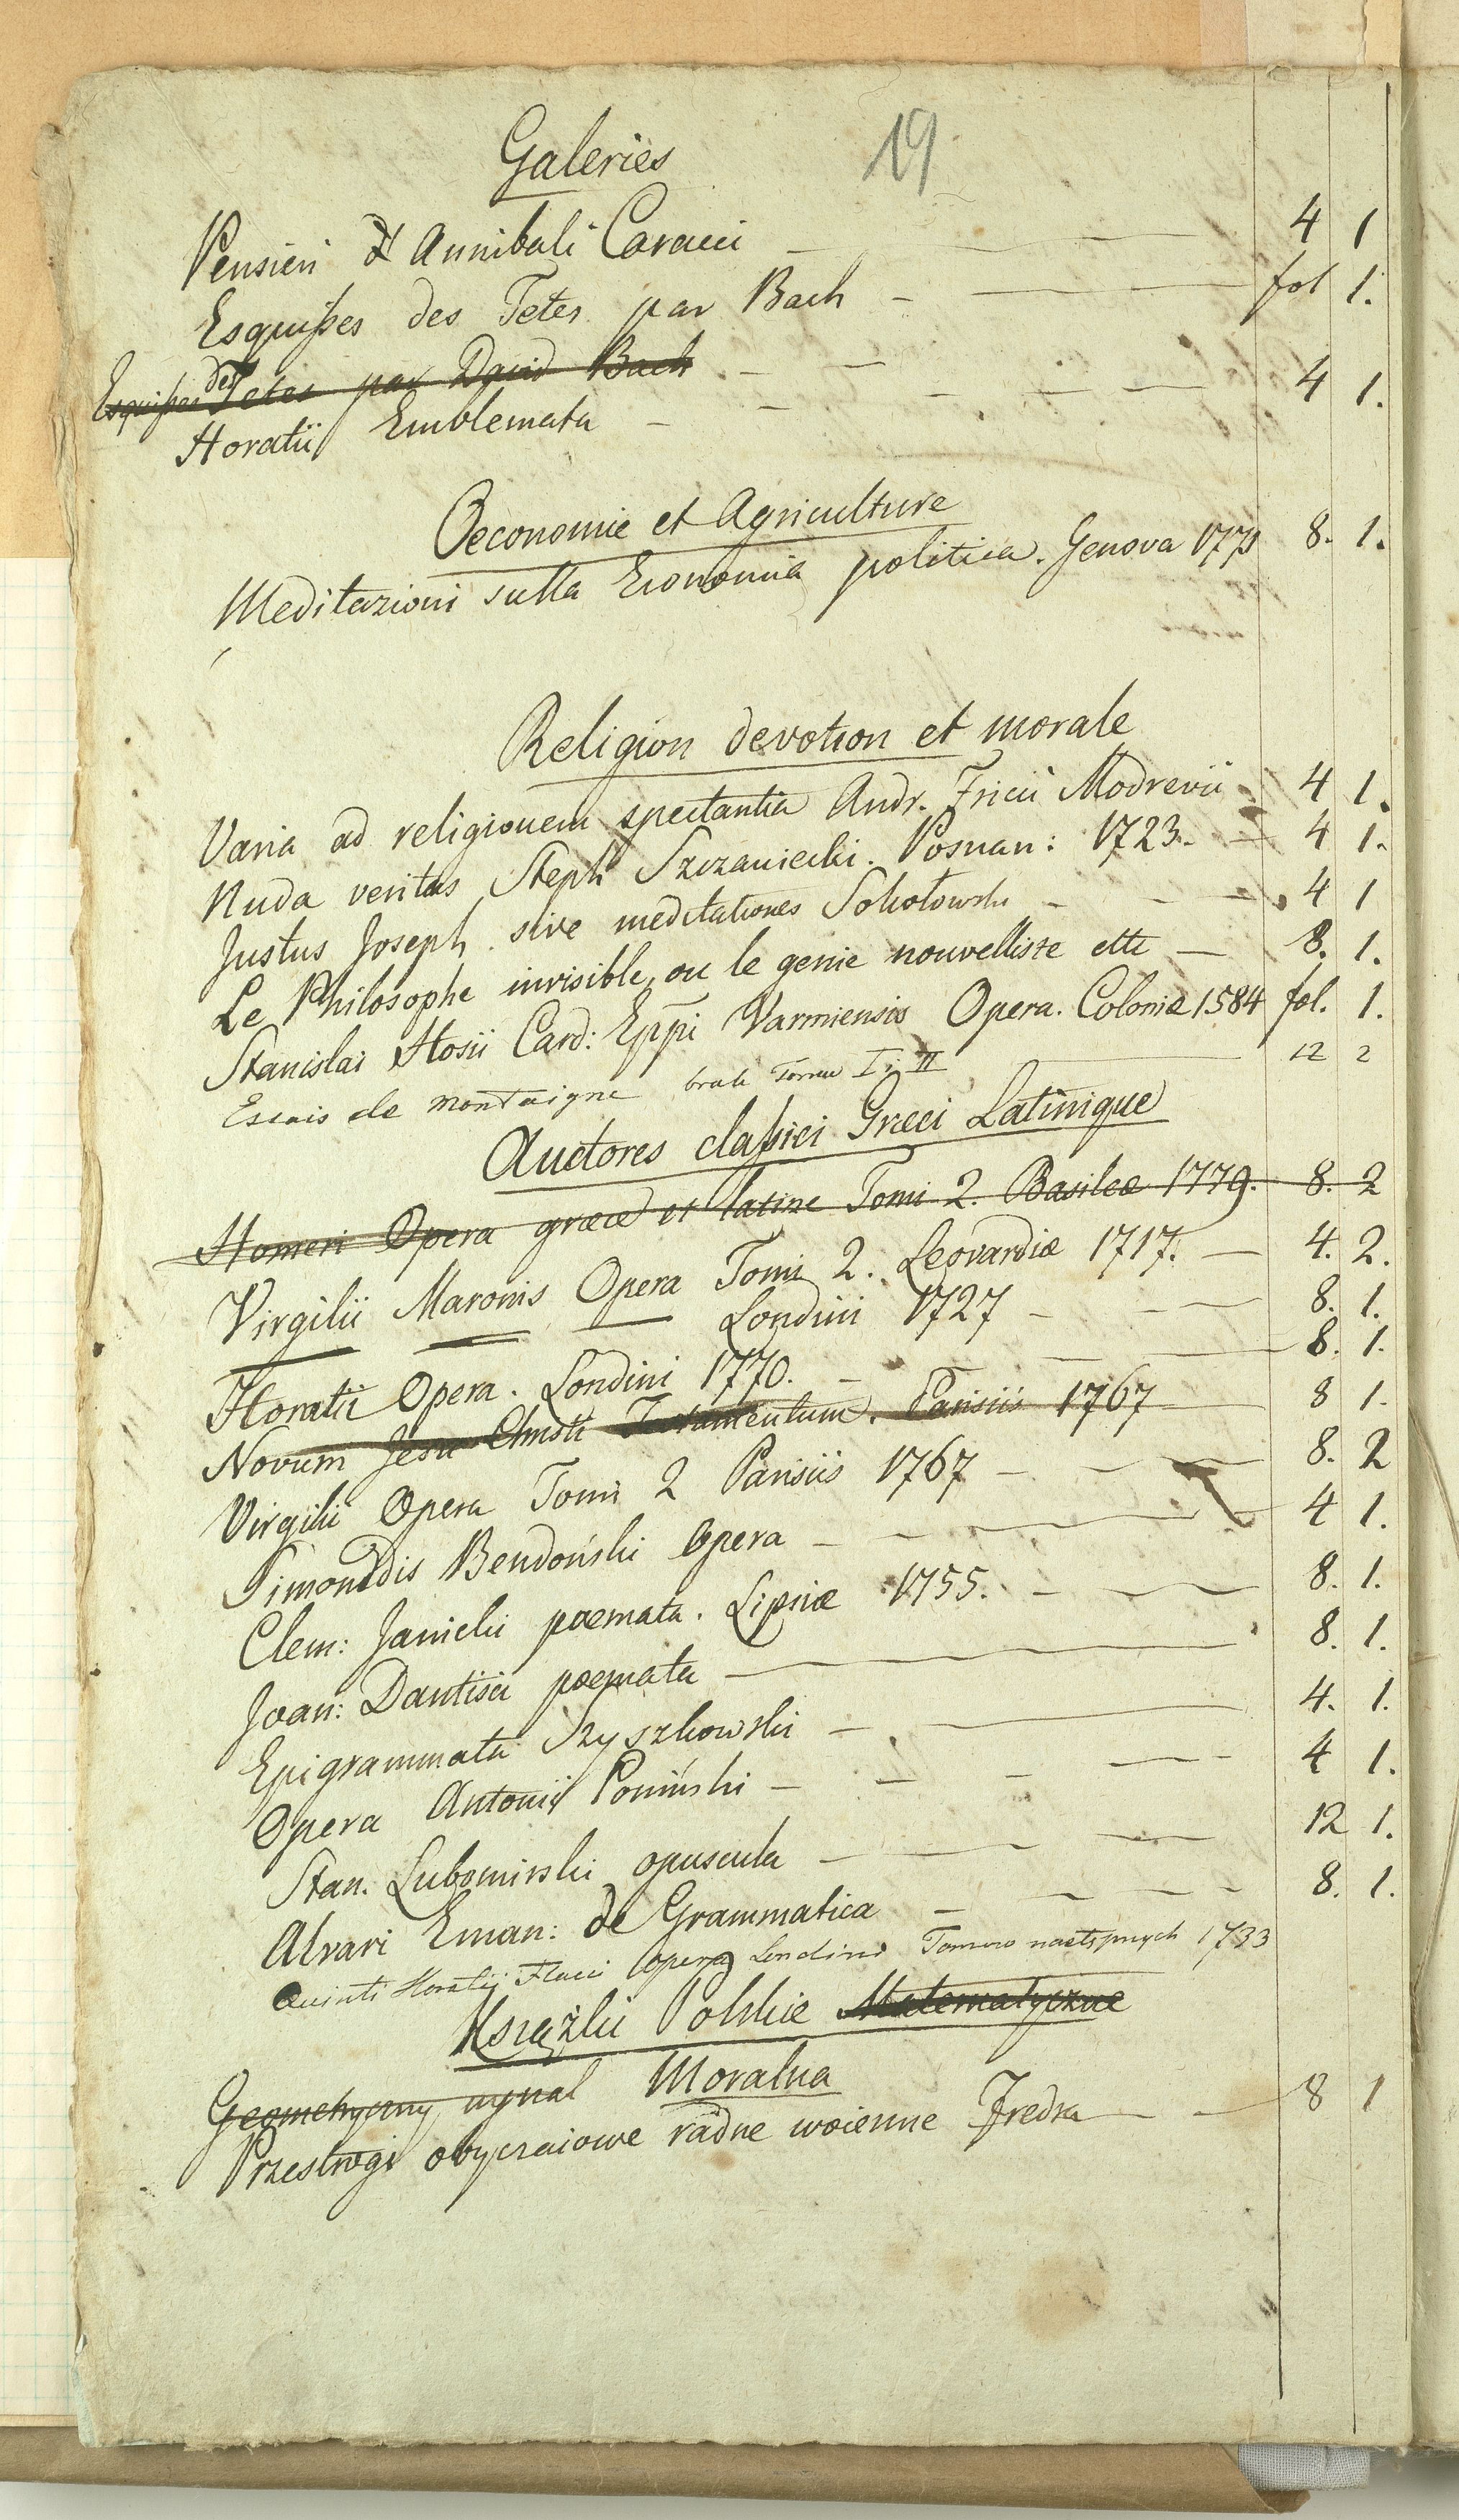 Galeries 19
Pensieri d'Annibali Caracci — 4 1
Esquisses des Tetes par Bach — fol 1.
Esquisses des Tetes par David Bach
Horatii Emblemata — 4 1.
Oeconomie et Agriculture
Meditazioni sulla Economia politica. Genova 1771 8. 1.
Religion devotion et morale
Varia ad religionem spectantia Andr. Fricii Modrevii 4 1.
Nuda veritas Steph Szczaniecki. Posnan: 1723. — 4 1.
Justus Joseph sive meditationes Sokołowski — 4 1
Le Philosophe invisible, ou le genie nouvelliste ettc — 8. 1.
Stanislai Hosii Card: Eppi Varmiensis Opera. Coloniæ 1584 fol. 1.
Essais de Montaigne brak Tomu I i II — 12 2
Auctores classici Græci Latinique
Homeri Opera græce et latine Tomi 2. Basileæ 1779. 8. 2
Virgilii Maronis Opera Tomi 2. Leovardiæ 1717. — 4. 2.
Londini 1727 — 8. 1.
Horatii Opera. Londini 1770. — 8. 1.
Novum Jesu Christi Testamentum. Parisiis 1767 8 1.
Virgilii Opera Tomi 2 Parisiis 1767 — 8. 2
Simonidis Bendoński Opera — 4 1.
Clem: Janicki poemata. Lipsiæ 1755. — 8. 1.
Joan: Dantisci poemata — 8. 1.
Epigrammata Szyszkowski — 4. 1.
Opera Antonii Poniński — 4 1.
Stan. Lubomirski opuscula — 12 1.
Alvari Eman: de Grammatica — 8. 1.
Quinti Horatii Flacci Opera Londini Tomow 1733
Książki Polskie Matematyczne
Geometryczny Moralna
Przestrogi obyczaiowe radne woienne Fredra — 8 1